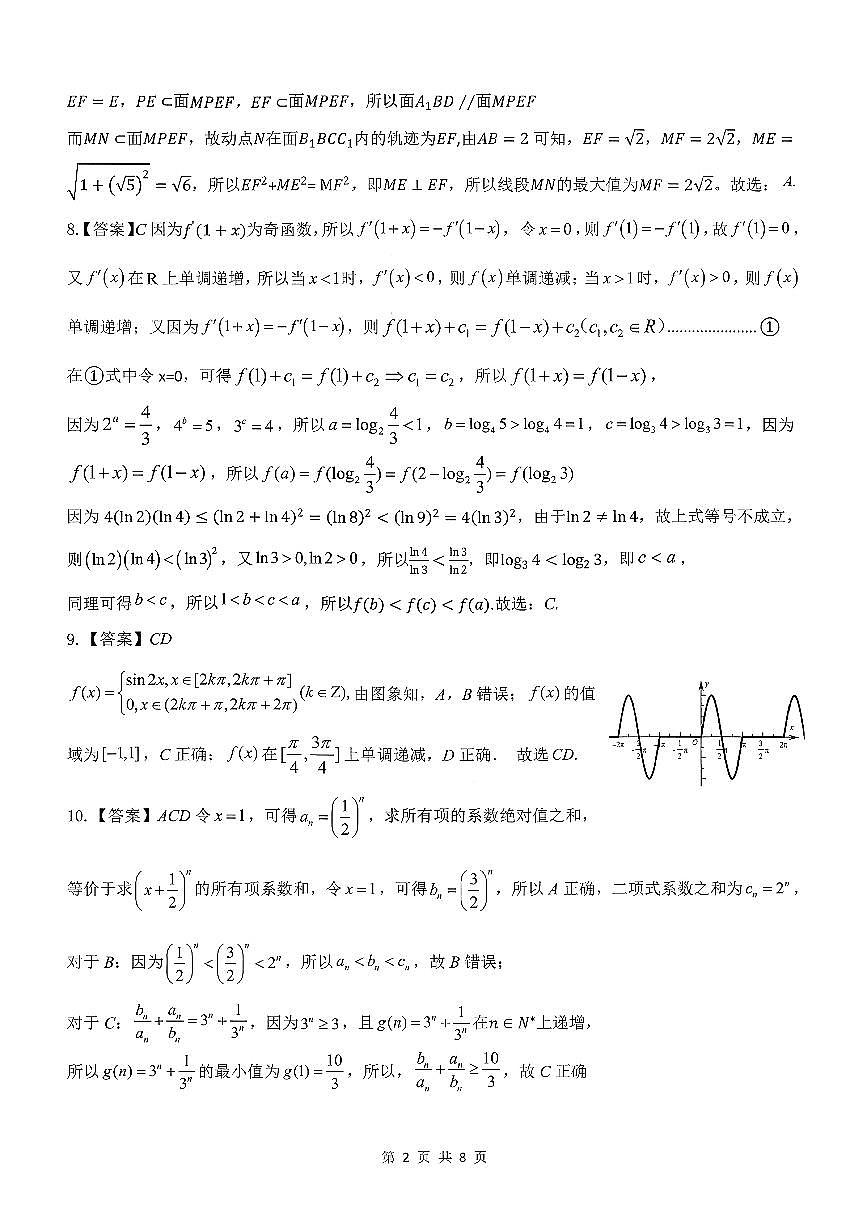 EF = E，PE ⊂面MPEF，EF ⊂面MPEF，所以面A₁BD //面MPEF
而MN ⊂面MPEF，故动点N在面B₁BCC₁内的轨迹为EF,由AB = 2 可知，EF = √2，MF = 2√2，ME =
√(1 + (√5)²) = √6，所以EF²+ME²= MF²，即ME ⊥ EF，所以线段MN的最大值为MF = 2√2。故选：A.
8.【答案】C 因为f′(1 + x)为奇函数,所以 f′(1+x)=−f′(1−x)，令 x=0,则 f′(1)=−f′(1),故 f′(1)=0,
又 f′(x)在 R 上单调递增,所以当 x<1时，f′(x)<0，则 f(x)单调递减；当 x>1时，f′(x)>0，则 f(x)
单调递增；又因为 f′(1+x)=−f′(1−x)，则 f(1+x)+c₁ = f(1−x)+c₂(c₁,c₂ ∈ R)......................①
在①式中令 x=0，可得 f(1)+c₁ = f(1)+c₂ ⇒ c₁ = c₂，所以 f(1+x)= f(1−x)，
因为 2ᵃ = 4/3，4ᵇ = 5，3ᶜ = 4，所以 a = log₂ 4/3 <1，b = log₄ 5 > log₄ 4 = 1，c = log₃ 4 > log₃ 3 = 1，因为
f(1+x)= f(1−x)，所以 f(a) = f(log₂ 4/3) = f(2−log₂ 4/3) = f(log₂ 3)
因为 4(ln 2)(ln 4) ≤ (ln 2 + ln 4)² = (ln 8)² < (ln 9)² = 4(ln 3)²，由于ln 2 ≠ ln 4，故上式等号不成立，
则(ln 2)(ln 4)<(ln3)²，又 ln3>0,ln2>0，所以 ln 4/ln 3 < ln 3/ln 2，即log₃ 4 < log₂ 3，即 c < a，
同理可得 b<c，所以 1<b<c<a，所以f(b) < f(c) < f(a).故选：C.
9. 【答案】CD
f(x)={sin 2x, x∈[2kπ,2kπ+π]
0, x∈(2kπ+π,2kπ+2π) (k∈Z),由图象知，A，B 错误；f(x) 的值
域为[−1,1]，C 正确；f(x) 在 [π/4, 3π/4] 上单调递减，D 正确． 故选 CD.
y
x
O
-2π 3/2 π 1/2 π 1/2 π π 3/2 π 2π
10. 【答案】ACD 令 x=1，可得 aₙ =(1/2)ⁿ，求所有项的系数绝对值之和，
等价于求(x+1/2)ⁿ的所有项系数和，令 x=1，可得 bₙ =(3/2)ⁿ，所以 A 正确，二项式系数之和为 cₙ = 2ⁿ，
对于 B：因为(1/2)ⁿ<(3/2)ⁿ<2ⁿ，所以 aₙ < bₙ < cₙ，故 B 错误；
对于 C：bₙ/aₙ + aₙ/bₙ = 3ⁿ + 1/3ⁿ，因为 3ⁿ ≥ 3，且 g(n) = 3ⁿ + 1/3ⁿ 在n ∈ N*上递增，
所以 g(n) = 3ⁿ + 1/3ⁿ 的最小值为 g(1) = 10/3，所以，bₙ/aₙ + aₙ/bₙ ≥ 10/3，故 C 正确
第 2 页 共 8 页